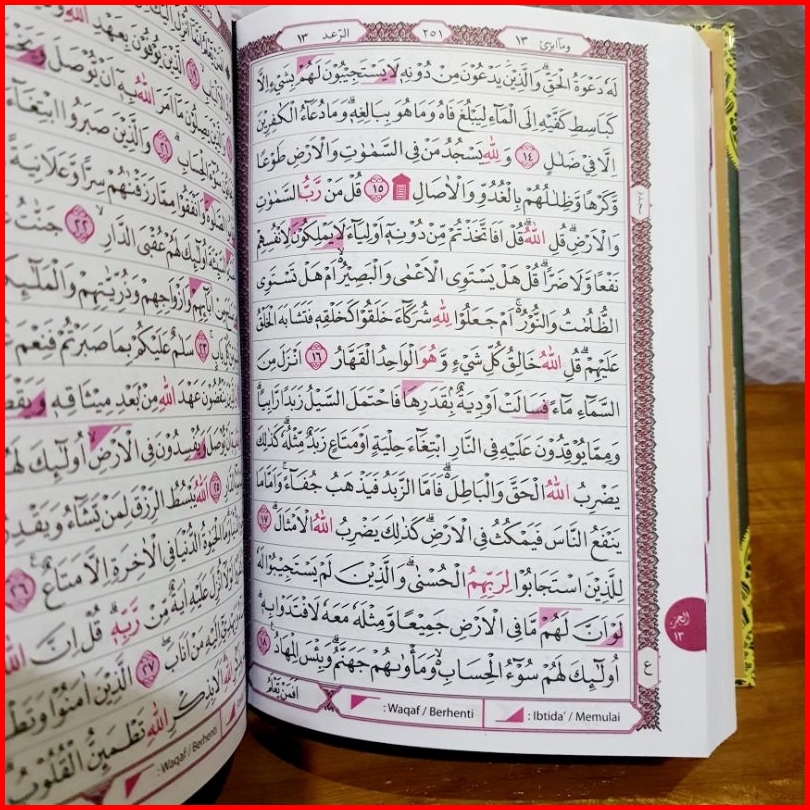 وما ابرئ ١٣
٢٥١
الرّعد ١٣
لَهٗ دَعْوَةُ الْحَقِّۗ وَالَّذِيْنَ يَدْعُوْنَ مِنْ دُوْنِهٖ لَا يَسْتَجِيْبُوْنَ لَهُمْ بِشَيْءٍ اِلَّا
كَبَاسِطِ كَفَّيْهِ اِلَى الْمَاۤءِ لِيَبْلُغَ فَاهُ وَمَا هُوَ بِبَالِغِهٖۗ وَمَا دُعَاۤءُ الْكٰفِرِيْنَ
اِلَّا فِيْ ضَلٰلٍ ١٤ وَلِلّٰهِ يَسْجُدُ مَنْ فِى السَّمٰوٰتِ وَالْاَرْضِ طَوْعًا
وَّكَرْهًا وَّظِلٰلُهُمْ بِالْغُدُوِّ وَالْاٰصَالِ ۩ ١٥ قُلْ مَنْ رَّبُّ السَّمٰوٰتِ
وَالْاَرْضِۗ قُلِ اللّٰهُۗ قُلْ اَفَاتَّخَذْتُمْ مِّنْ دُوْنِهٖٓ اَوْلِيَاۤءَ لَا يَمْلِكُوْنَ لِاَنْفُسِهِمْ
نَفْعًا وَّلَا ضَرًّاۗ قُلْ هَلْ يَسْتَوِى الْاَعْمٰى وَالْبَصِيْرُ ەۙ اَمْ هَلْ تَسْتَوِى
الظُّلُمٰتُ وَالنُّوْرُ ەۚ اَمْ جَعَلُوْا لِلّٰهِ شُرَكَاۤءَ خَلَقُوْا كَخَلْقِهٖ فَتَشَابَهَ الْخَلْقُ
عَلَيْهِمْۗ قُلِ اللّٰهُ خَالِقُ كُلِّ شَيْءٍ وَّهُوَ الْوَاحِدُ الْقَهَّارُ ١٦ اَنْزَلَ مِنَ
السَّمَاۤءِ مَاۤءً فَسَالَتْ اَوْدِيَةٌ ۢ بِقَدَرِهَا فَاحْتَمَلَ السَّيْلُ زَبَدًا رَّابِيًاۗ
وَمِمَّا يُوْقِدُوْنَ عَلَيْهِ فِى النَّارِ ابْتِغَاۤءَ حِلْيَةٍ اَوْ مَتَاعٍ زَبَدٌ مِّثْلُهٗۗ كَذٰلِكَ
يَضْرِبُ اللّٰهُ الْحَقَّ وَالْبَاطِلَ ەۗ فَاَمَّا الزَّبَدُ فَيَذْهَبُ جُفَاۤءًۚ وَاَمَّا مَا
يَنْفَعُ النَّاسَ فَيَمْكُثُ فِى الْاَرْضِۗ كَذٰلِكَ يَضْرِبُ اللّٰهُ الْاَمْثَالَۗ ١٧
لِلَّذِيْنَ اسْتَجَابُوْا لِرَبِّهِمُ الْحُسْنٰىۗ وَالَّذِيْنَ لَمْ يَسْتَجِيْبُوْا لَهٗ
لَوْ اَنَّ لَهُمْ مَّا فِى الْاَرْضِ جَمِيْعًا وَّمِثْلَهٗ مَعَهٗ لَافْتَدَوْا بِهٖۗ
اُولٰۤىِٕكَ لَهُمْ سُوْۤءُ الْحِسَابِ ەۙ وَمَأْوٰىهُمْ جَهَنَّمُۗ وَبِئْسَ الْمِهَادُ ١٨
اَفَمَنْ يَّعْلَمُ
: Waqaf / Berhenti
: Ibtida' / Memulai
الجزء
١٣
ع
الَّذِيْنَ يُوْفُوْنَ بِعَهْدِ
يَصِلُوْنَ مَآ اَمَرَ اللّٰهُ بِهٖٓ اَنْ يُّوْصَلَ
الْحِسَابِ ٢١ وَالَّذِيْنَ صَبَرُوا ابْتِغَاۤءَ
وَاَنْفَقُوْا مِمَّا رَزَقْنٰهُمْ سِرًّا وَّعَلَانِيَةً
اُولٰۤىِٕكَ لَهُمْ عُقْبَى الدَّارِ ٢٢ جَنّٰتُ
وَاَزْوَاجِهِمْ وَذُرِّيّٰتِهِمْ وَالْمَلٰۤىِٕكَةُ
٢٣ سَلٰمٌ عَلَيْكُمْ بِمَا صَبَرْتُمْ فَنِعْمَ
يَنْقُضُوْنَ عَهْدَ اللّٰهِ مِنْۢ بَعْدِ مِيْثَاقِهٖ
يُّوْصَلَ وَيُفْسِدُوْنَ فِى الْاَرْضِ اُولٰۤىِٕكَ
٢٥ اَللّٰهُ يَبْسُطُ الرِّزْقَ لِمَنْ يَّشَاۤءُ وَيَقْدِرُ
الدُّنْيَا فِى الْاٰخِرَةِ اِلَّا مَتَاعٌ ٢٦
اُنْزِلَ عَلَيْهِ اٰيَةٌ مِّنْ رَّبِّهٖۗ قُلْ اِنَّ اللّٰهَ
اِلَيْهِ مَنْ اَنَابَ ٢٧ اَلَّذِيْنَ اٰمَنُوْا
بِذِكْرِ اللّٰهِ تَطْمَىِٕنُّ الْقُلُوْبُ
: Waqaf / Berhenti